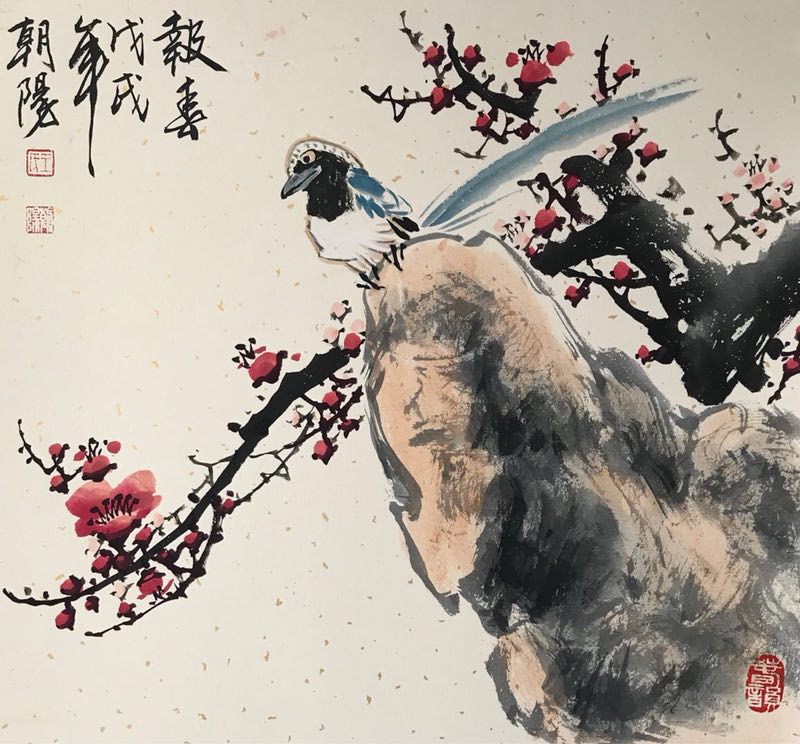 報春
戊戌
年
朝陽